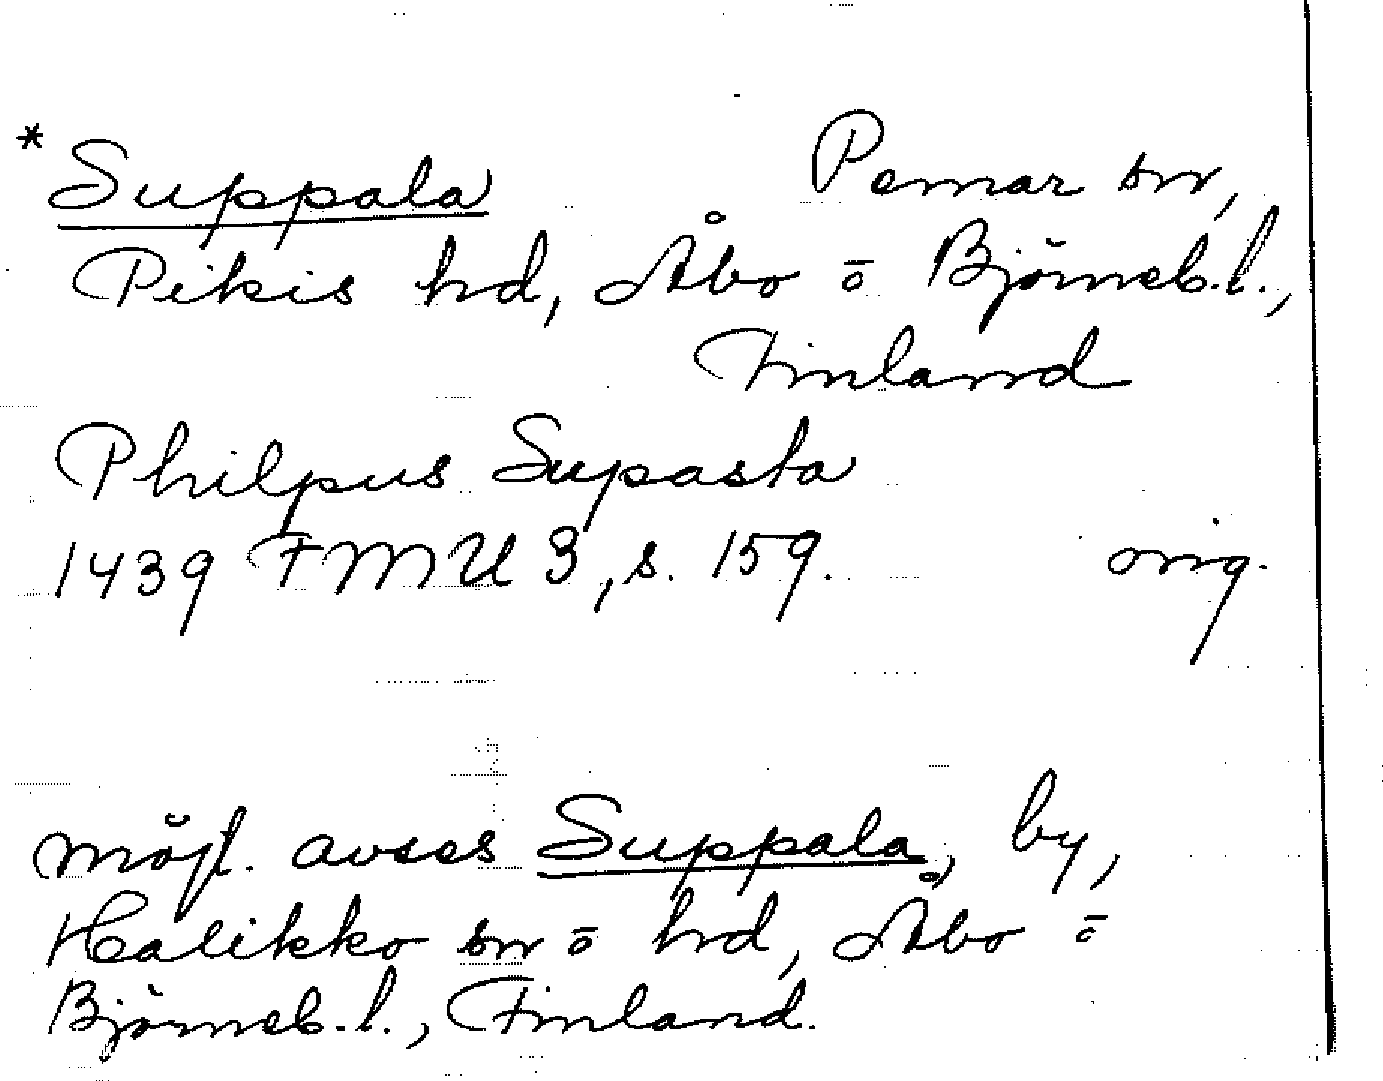 * Suppala Pemar sn,
Pikis hd, Åbo o Björneb.l.,
Finland
Philpus Supasta
1439 FMU 3, s. 159. orig.
möjl. avses Suppala, by,
Halikko sn o hd, Åbo o
Björneb.l., Finland.